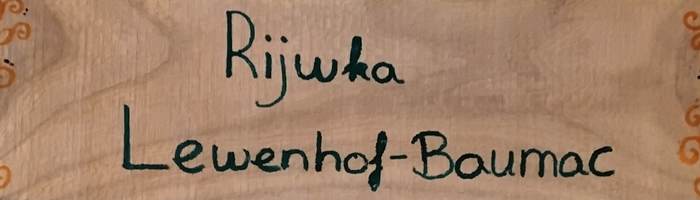 Rijwka
Lewenhof-Baumac